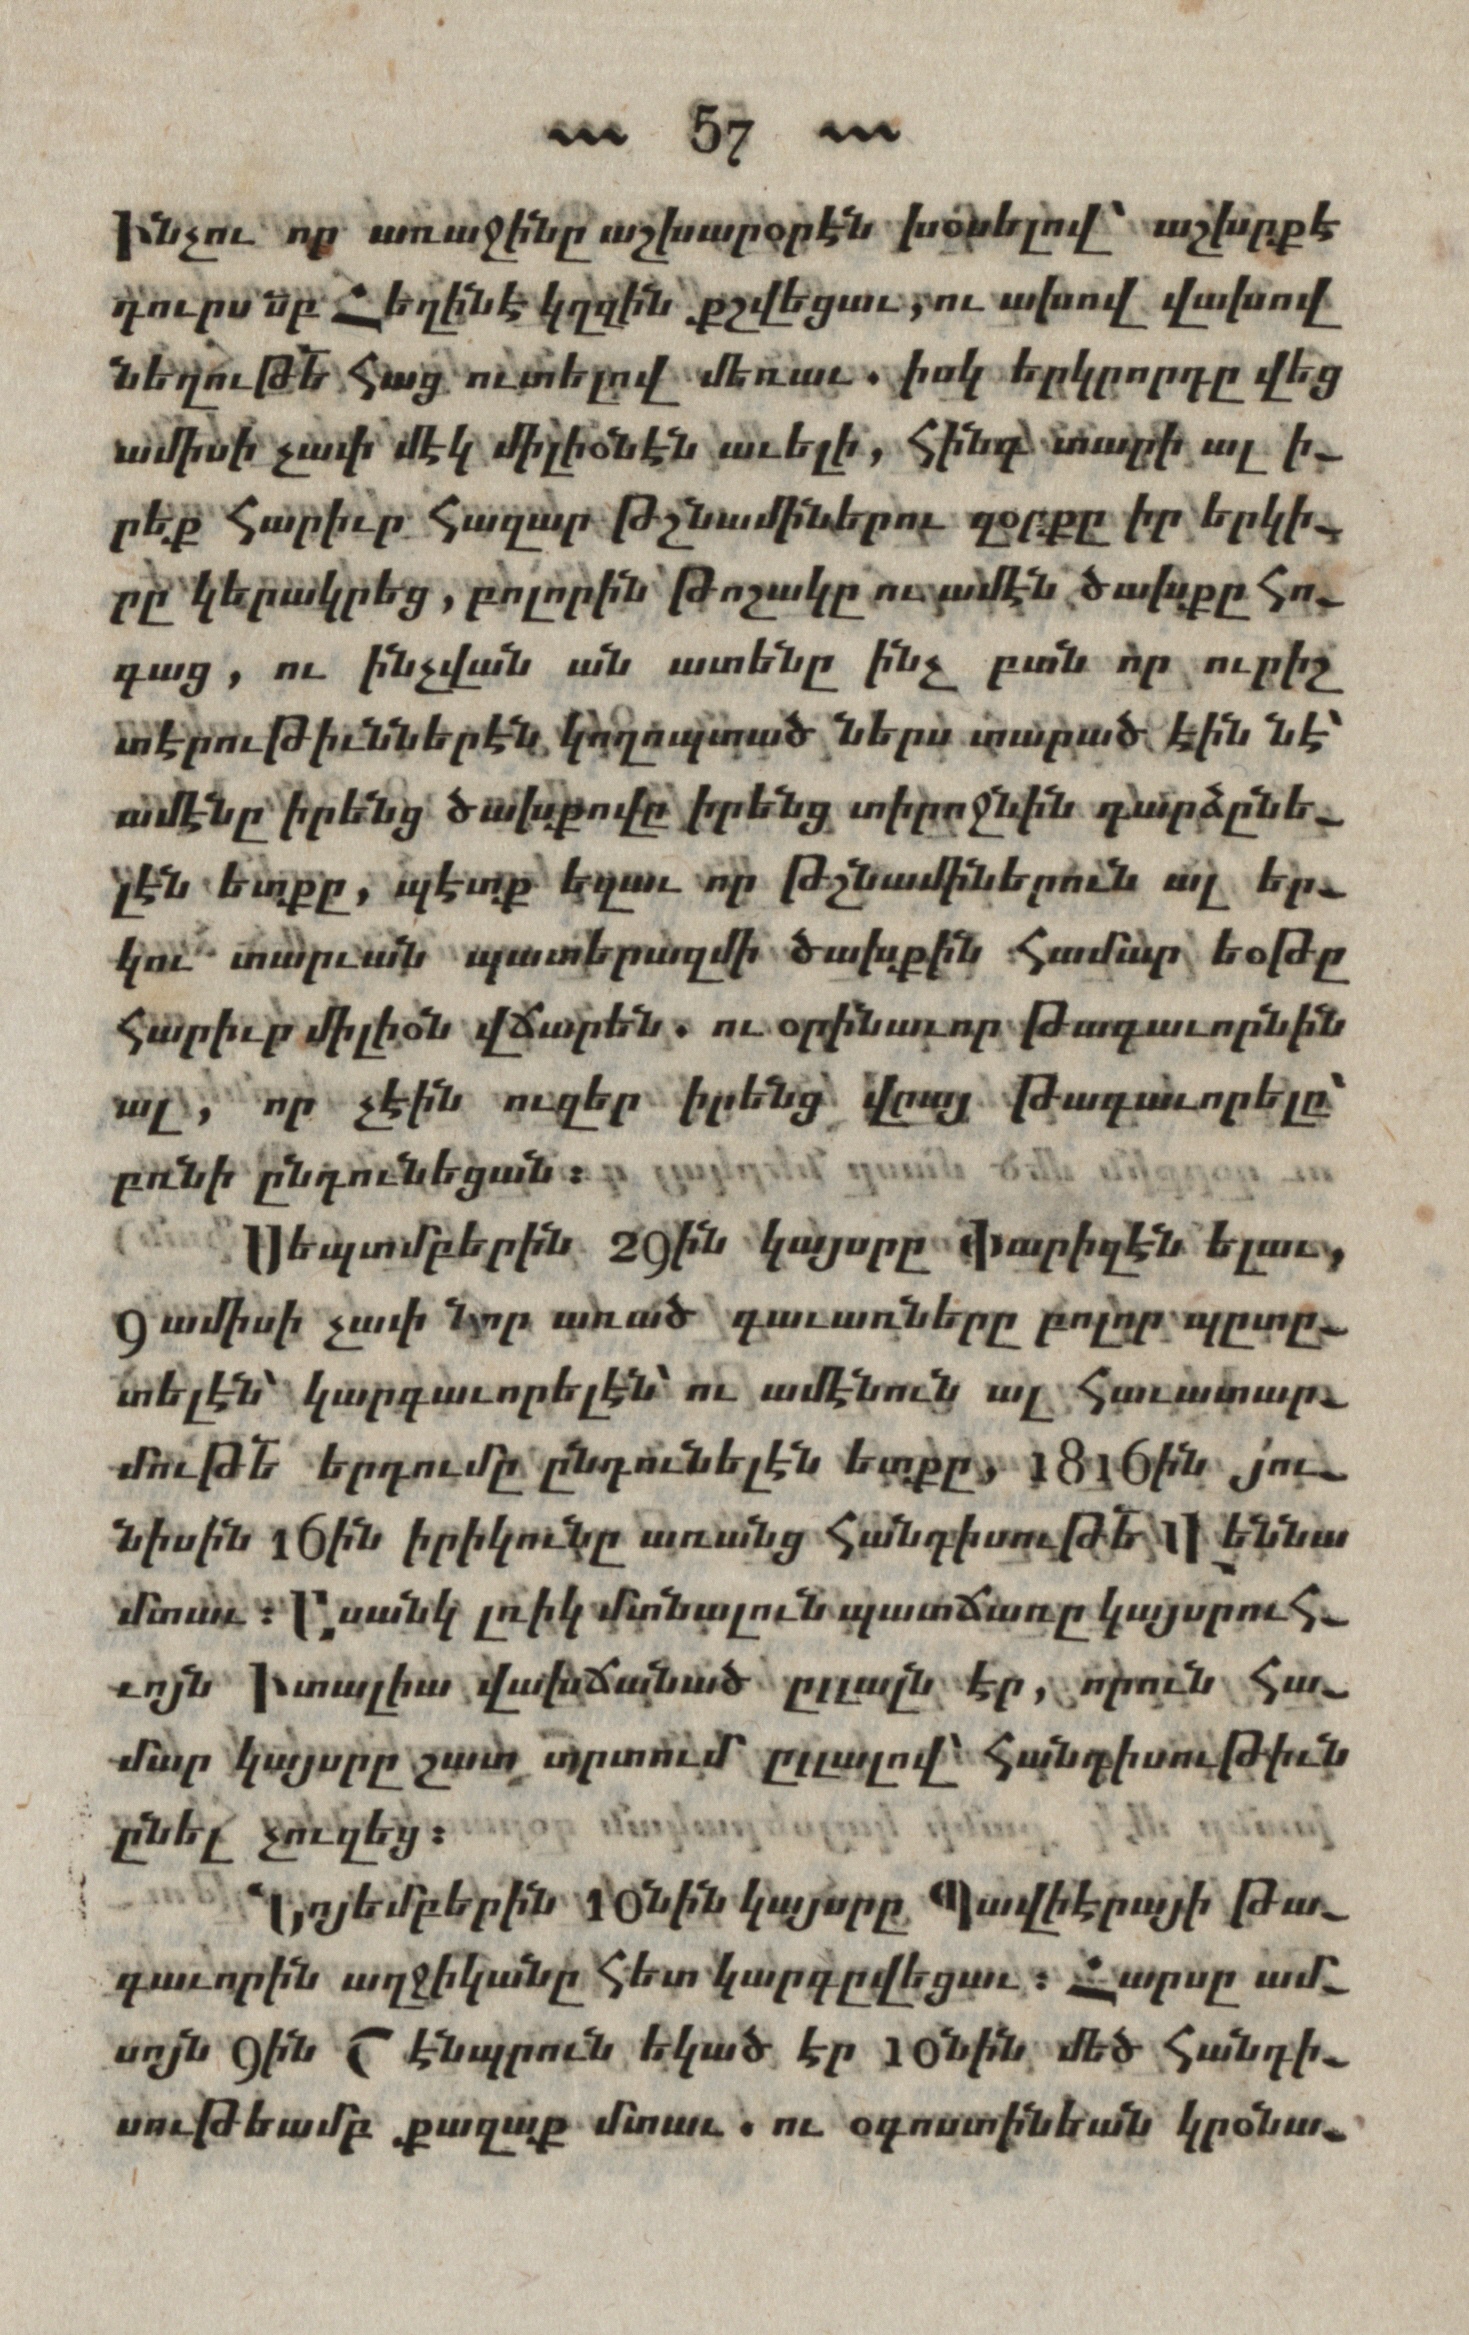 57
Ինչու որ առաջինը աշխարօրէն խօսելով՝ աշխըրքէ
դուրս սբ Հեղինէ կղզին քշվեցաւ, ու ախով վախով
նեղութե՜ հաց ուտելով մեռաւ. իսկ երկրորդը վեց
ամիսի չափ մէկ միլիօնէն աւելի, հինգ տարի ալ ի-
րեք հարիւր հազար թշնամիներու զօրքը իր երկի-
րը կերակրեց, բոլորին թոշակը ու ամէն ծախքը հո-
գաց, ու ինչվան ան ատենը ինչ բան որ ուրիշ
տէրութիւններէն կողոպտած ներս տարած էին նէ՝
ամէնը իրենց ծախքովը իրենց տիրոջնին դարձընե-
լէն ետքը, պէտք եղաւ որ թշնամիներուն ալ եր-
կու տարւան պատերազմի ծախքին համար եօթը
հարիւր միլիօն վճարեն. ու օրինաւոր թագաւորնին
ալ, որ չէին ուզեր իրենց վրայ թագաւորելը՝
բռնի ընդունեցան։
Սեպտմբերին 29ին կայսրը Փարիզէն ելաւ,
9 ամիսի չափ նոր առած գաւառները բոլոր պըտը-
տելէն՝ կարգաւորելէն՝ ու ամէնուն ալ հաւատար-
մութե՜ երդումը ընդունելէն ետքը, 1816ին յու-
նիսին 16ին իրիկունը առանց հանդիսութե՜ Վէննա
մտաւ։ Ասանկ լռիկ մտնալուն պատճառը կայսրուհ-
ւոյն Իտալիա վախճանած ըլլալն էր, որուն հա-
մար կայսրը շատ տրտում ըլլալով՝ հանդիսութիւն
ընել չուզեց։
Նոյեմբերին 10նին կայսրը Պավիէրայի թա-
գաւորին աղջիկանը հետ կարգըվեցաւ։ Հարսը ամ-
սոյն 9ին Շէնպրուն եկած էր 10նին մեծ հանդի-
սութեամբ քաղաք մտաւ. ու օգոստինեան կրօնա-